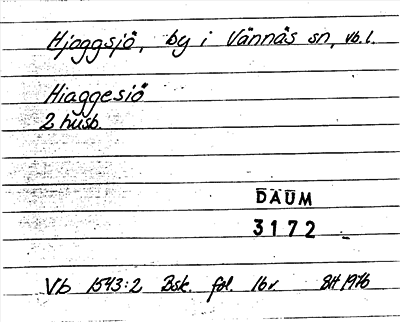 Hjoggsjö, by i Vännäs sn, vb.l.
Hiaggesiö
2 husb.
DAUM
3172
Vb 1543:2 Bsk. fol. 16v BH 1976